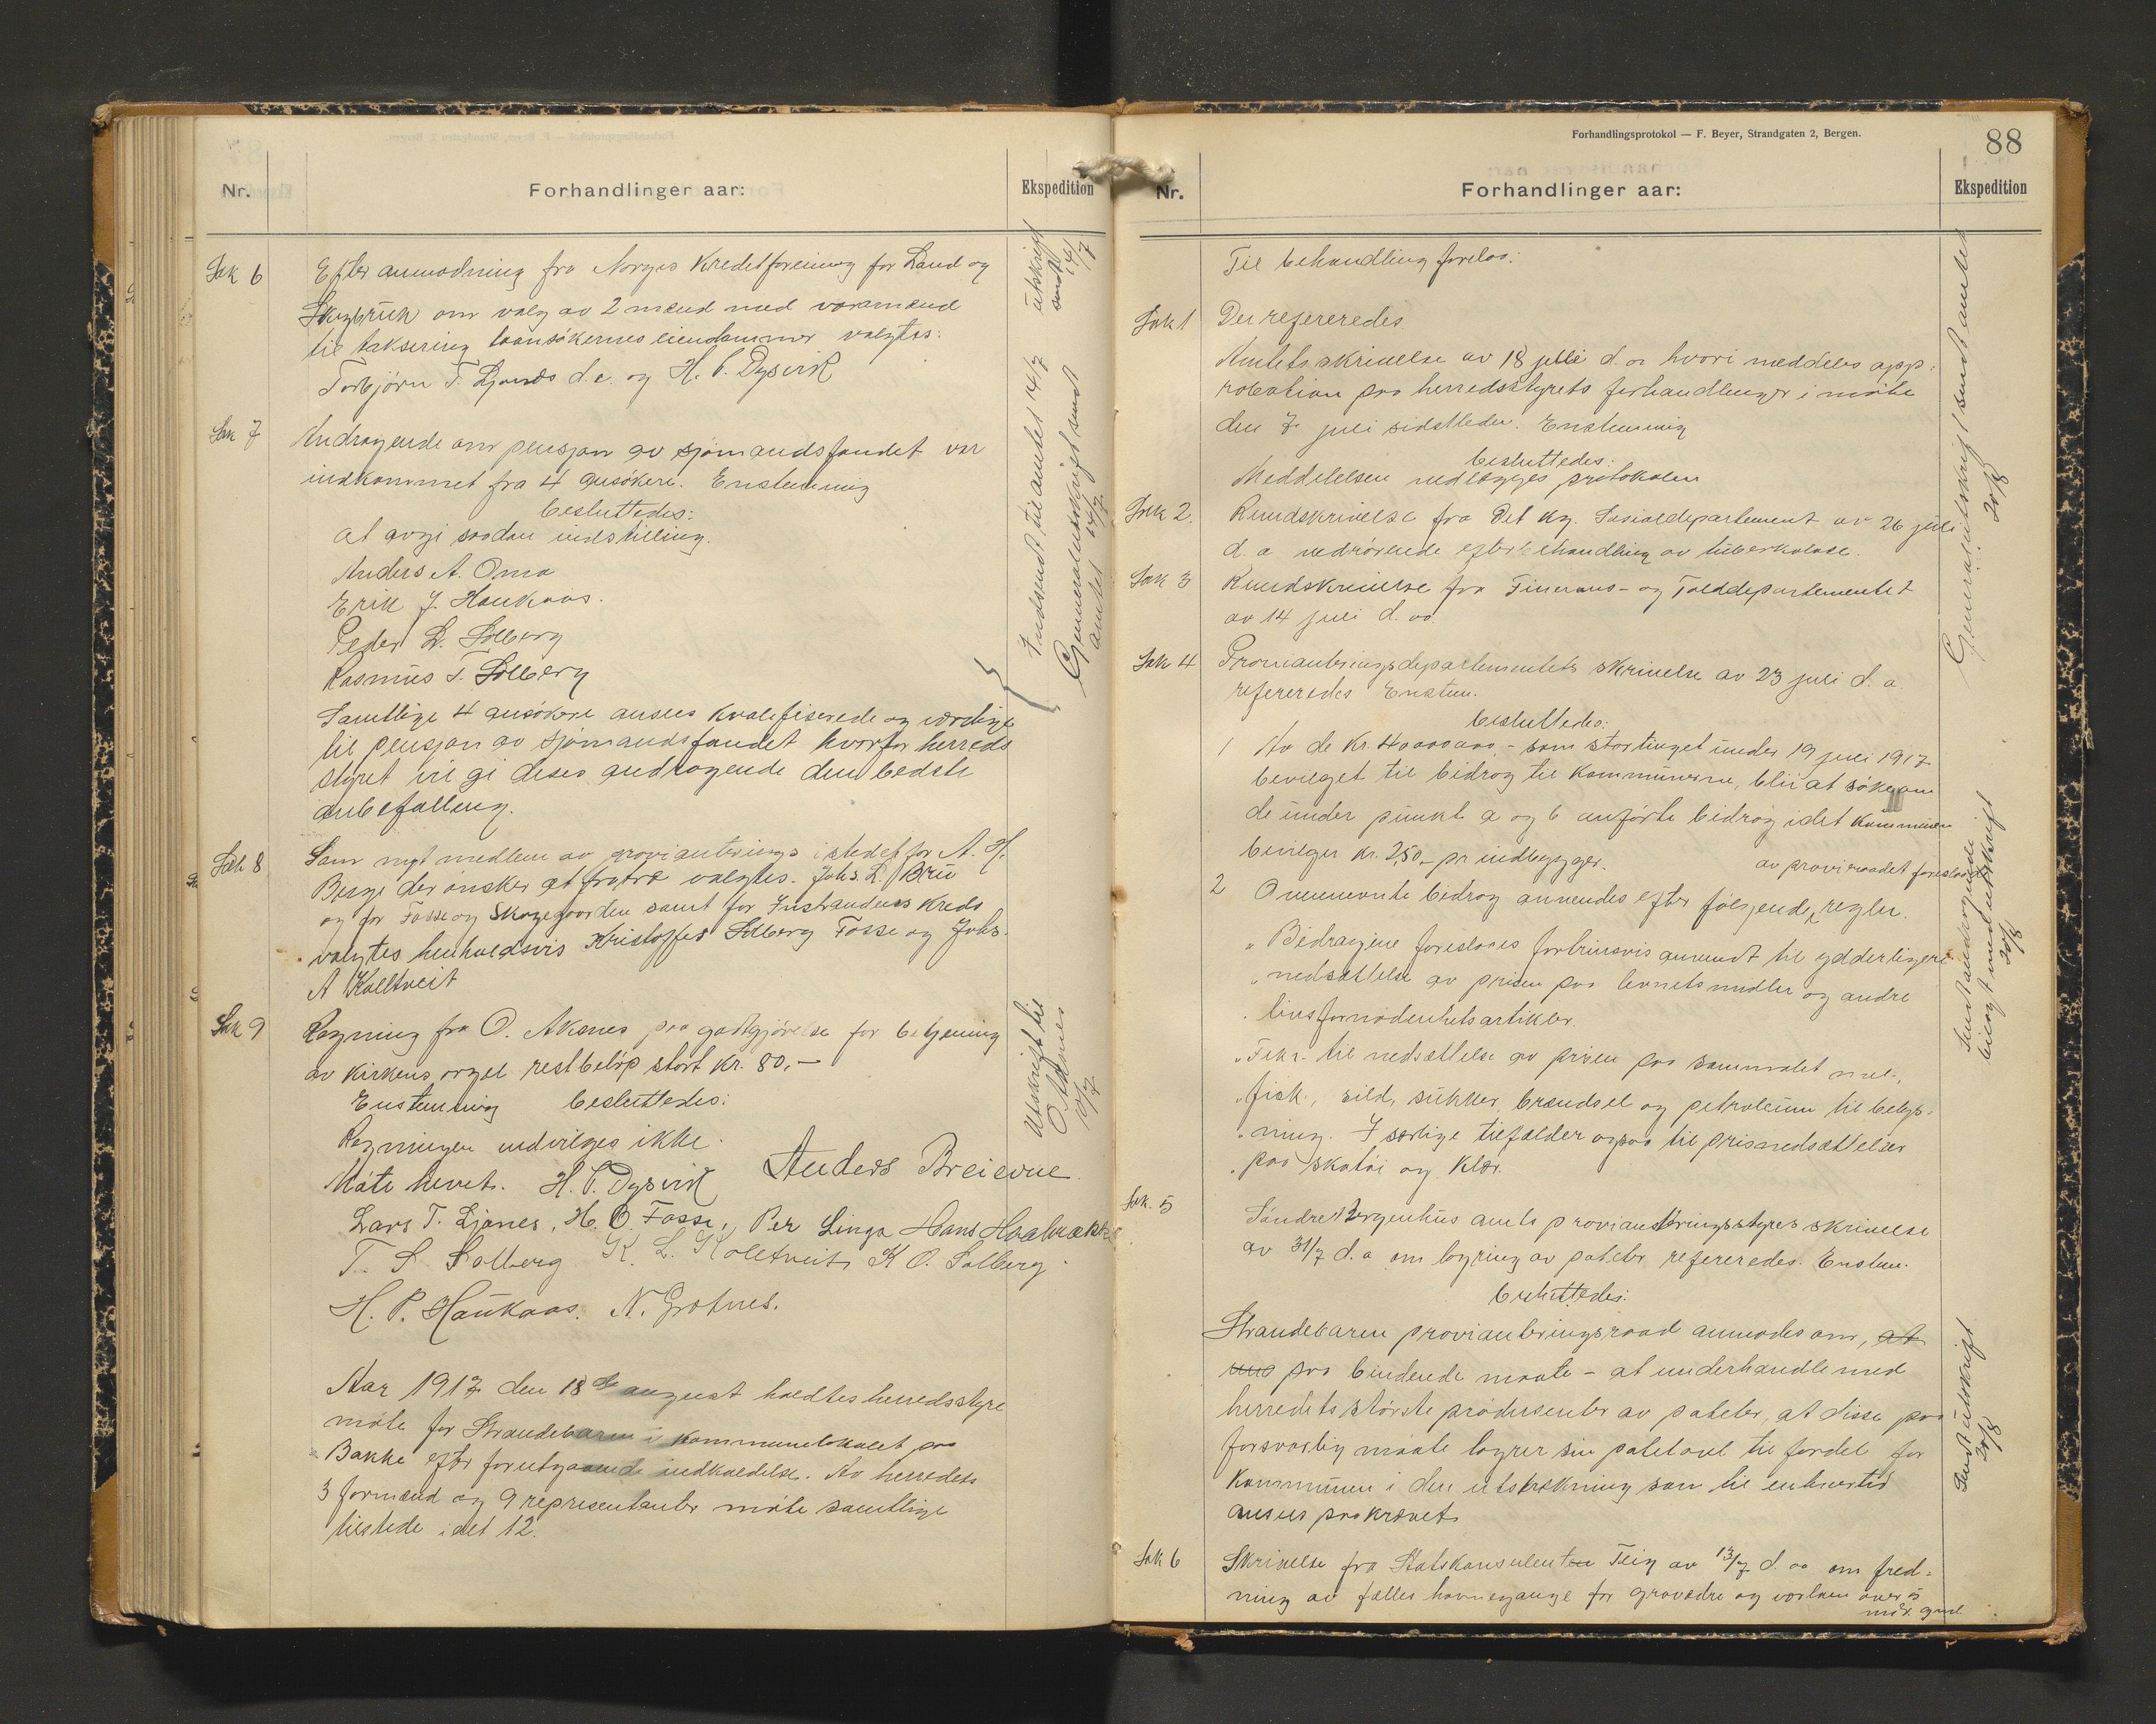 Nr.
Forhandlinger aar:
Ekspedition
Sak 6
Efter anmodning fra Norges Kreditforening for Land og
Skogbruk om valg av 2 mænd med varamænd
til taksering laansøkernes eiendommer valgtes:
Torbjørn T. Ljones d.e. og H. P. Dysvik
utskrift
sendt
14/7
Sak 7
Andragende om pensjon av sjømandsfondet var
indkommet fra 4 ansøkere. Enstemmig
besluttedes:
at avgi saadan indstilling.
Anders A. Oma
Erik J. Haukaas.
Peder L. Solberg
Rasmus T. Solberg
Samtlige 4 ansøkere ansees kvalifiserede og værdige
til pensjon av sjømandsfondet hvorfor herreds
styret vil gi deres andragende den bedste
anbefalling.
Indsendt til amtet 14/7
Generalutskrift sendt
amtet 14/7
Sak 8
Som nyt medlem av provianterings istedet for A. H.
Berge der ønsker at fratræ valgtes. Johs. L. Bru
og for Fosse og Skogegaarden samt for Instrandens Kreds
valgtes henholdsvis Kristoffer Solberg Fosse og Johs.
A Kolltveit
Sak 9
Regning fra O. Aksnes paa godtgjørelse for betjening
av kirkens orgel restbeløp stort kr. 80,-
Enstemmig besluttedes:
Regningen indvilges ikke.
Utskrift til
O Aksnes
10/7
Møte hevet. H. P. Dysvik Anders Breievne.
Lars T. Ljones, H. O. Fosse, Per Linga Hans
T. S. Solberg K. L. Kolltveit, K O. Solberg.
H. P. Haukaas. N. Grotnes.
Aar 1917 den 18de august holdtes herredsstyre
møte for Strandebarm i kommunelokalet paa
Bakke efter forutgaaende indkaldelse. Av herredets
3 formænd og 9 representanter møtte samtlige
tilstede i alt 12.
Forhandlingsprotokol — F. Beyer, Strandgaten 2, Bergen.
88
Nr.
Forhandlinger aar:
Ekspedition
Til behandling forelaa:
Sak 1
Der refereredes.
Amtets skrivelse av 18 juli d. a hvori meddeles app-
robation paa herredsstyrets forhandlinger i møte
den 7 juli sidstleden. Enstemmig
besluttedes:
Meddelelsen vedlægges protokolen
Sak 2.
Rundskrivelse fra Det kg. Sosialdepartement av 26 juli
d. a vedrørende efterbehandling av tuberkulose.
Sak 3
Rundskrivelse fra Finans- og Tolddepartementet
av 14 juli d. aa
Generalutskrift sendt amtet
20/8
Sak 4
Provianteringsdepartementets skrivelse av 23 juli d. a.
refereredes Enstem.
besluttedes:
1 Av de kr. 40000000,- som stortinget under 19 juli 1917
bevilget til bidrag til kommunerne, blir at søke om
de under punkt a og b anførte bidrag idet kommunen
bevilger kr. 2,50 pr indbygger.
av proviraadet foreslaaede
2 Ovennevnte bidrag anvendes efter følgende regler.
"Bidragene foreslaaes fortrinsvis anvendt til ydderligere
"nedsættelse av prisen paa levnetsmidler og andre
"livsfornødenhetsartikler.
"F.eks. til nedsættelse av prisen paa sammalet mel,
"fisk, sild, sukker, brændsel og petroleum til belys-
"ning. I særlige tilfælder ogsaa til prisnedsættelser
"paa skotøi og klær.
Sendt andragende
bilagt med utskrift
20/8
Sak. 5
Søndre Bergenhus amts provianteringsstyres skrivelse
av 31/7 d. a om lagring av poteter refereredes. Enstem.
besluttedes:
Strandebarm provianteringsraad anmodes om, at
paa bindende maate - at underhandle med
herredets største produsenter av poteter, at disse paa
forsvarlig maate lagrer sin potetavl til fordel for
kommunen i den utstrækning som til enhver tid
ansees paakrævet.
Sendt utskrift
20/8
Sak 6
Skrivelse fra Statskonsulenten Teig av 13/7 d. aa om fred-
ning av fælles havnegange for graveædre og værlam over 5
mdr. gml